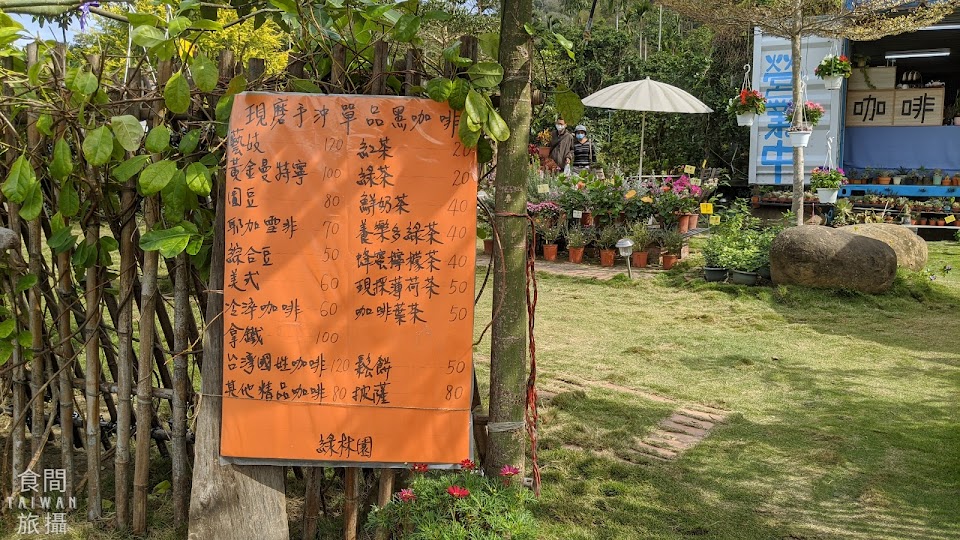 現磨手沖單品黑咖啡
藝妓 120
黃金曼特寧 100
圓豆 80
耶加雪啡 70
綜合豆 50
美式 60
冷淬咖啡 60
拿鐵 100
台灣國姓咖啡 120
其他精品咖啡 80
紅茶 20
綠茶 20
鮮奶茶 40
養樂多綠茶 40
蜂蜜檸檬茶 40
現採薄荷茶 50
咖啡葉茶 50
鬆餅 50
披薩 80
綠林園
營業中
咖啡
食間
TAIWAN
旅攝